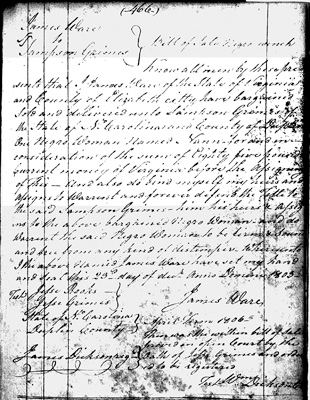 (466)
James Ware
to
Sampson Grimes } Bill of Sale Negro wench
Know all men by these pre
sents that I James Ware of the State of Virginia
and County of Elizabeth citty have bargained
Sold and delivered unto Samson Grimes of
the State of N. Carolina and County of Duplin
One Negro Woman Named for and in con
consideration of the sum of Eighty five pounds
Current money of Virginia before the
of this — And also do bind myself my heirs
assigns to Warrant and forever defend the title to
the said Samson Grimes him his heirs & assigns
to the above bargained Negro Woman and do
Warrant the said Negro Woman to be
and free from any kind of distemper. Whereunto
I the above named James Ware have set my hand
and seal this 23rd day of decr. Anno Domini 1805
Test
Jesse
Jesse Grimes } James Ware
State of No. Carolina } April Term 1806
Duplin County } Then was the within bill of sale
proved in open Court by the
Oath of Jesse Grimes and ord
to be registered
Test Wm Dickson